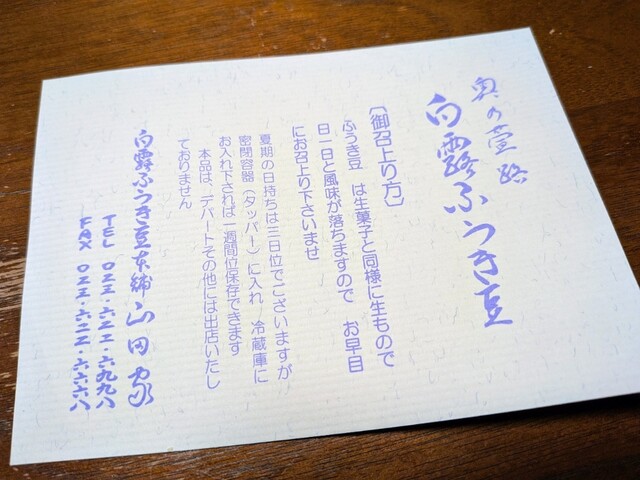 奥の萱路
白露ふうき豆
〔御召上り方〕
ふうき豆　は生菓子と同様に生もので
日一日と風味が落ちますので　お早目
にお召上り下さいませ
夏期の日持ちは三日位でございますが
密閉容器（タッパー）に入れ　冷蔵庫に
お入れ下されば一週間位保存できます
本品は、デパートその他には出店いたし
ておりません
白露ふうき豆本舗山田家
TEL 〇二三・六二二・六九九八
FAX 〇二三・六二二・六六六八